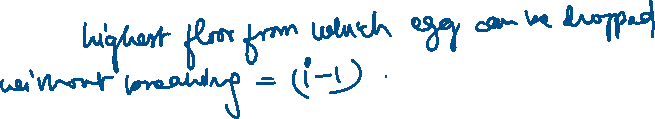 highest floor from which egg can be dropped
without breaking = (i-1).